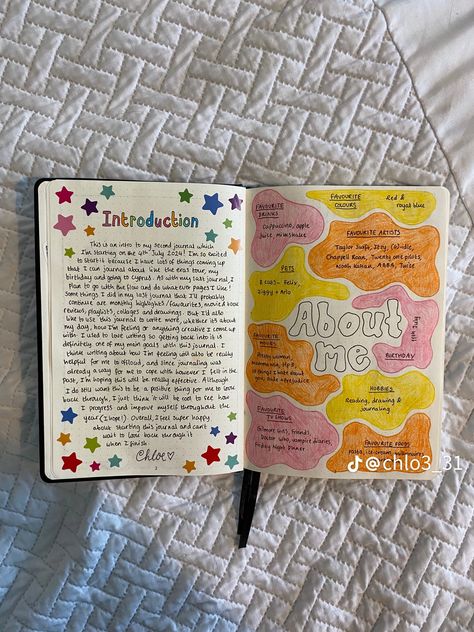 Introduction
This is an intro to my second journal which
I'm starting on the 4th July 2024! I'm so excited
to start it because I have lots of things coming up
that I can journal about like the eras tour, my
birthday and going to Cyprus. As with my last journal, I
plan to go with the flow and do whatever pages I like!
Some things I did in my last journal that I'll probably
continue are monthly highlights/favourites, movie & book
reviews, playlists, collages and drawings. But I'd also
like to use this journal to write more whether it's about
my day, how I'm feeling or anything creative I come up
with. I used to love writing so getting back into it is
definitely one of my main goals with this journal. I
think writing about how I'm feeling will also be really
helpful for me to offload, and since journaling was
already a way for me to cope with however I felt in the
past, I'm hoping this will be really effective. Although
I do still want this to be a positive thing for me to look
back through, I just think it will be cool to see how
I progress and improve myself throughout the
year (I hope!). Overall, I'm super happy
about starting this journal and can't
wait to look back through it
when I finish.
Chloe♡
FAVOURITE
DRINKS
Cappuccino, apple
juice, milkshake
FAVOURITE
COLOURS
Red &
royal blue
FAVOURITE ARTISTS
Taylor Swift, Izzy, (G)i-dle,
Chappell Roan, Twenty one pilots,
Noah Kahan, ABBA, Twice
PETS
3 cats - Felix,
Ziggy + Arlo
About
me
11th July
BIRTHDAY
FAVOURITE
MOVIES
Pretty woman,
10 things I hate about
you, Pride + prejudice
HOBBIES
Reading, drawing &
journaling
FAVOURITE
TV SHOWS
Gilmore Girls, Friends,
Doctor Who, Vampire Diaries,
Friday Night Dinner
FAVOURITE FOODS
Pasta, ice-cream,
@chlo3_31